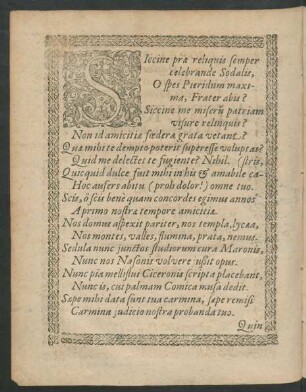 SIccine præ reliquis semper
celebrande Sodalis,
O spes Pieridum maxi-
ma, Frater abis?
Siccine me miserũ patriam
visure relinquis?
Non id amicitiæ fœdera grata vetant?
Quæ mihi te dempto poterit superesse voluptas?
Quid me delectet te fugiente? Nihil. (stris,
Quicquid dulce fuit mihi in his & amabile ca-
Hoc aufers abitu (proh dolor!) omne tuo.
Scis, ô scis bene quam concordes egimus annos
A primo nostræ tempore amicitiæ.
Nos domus aspexit pariter, nos templa, lycæa,
Nos montes, valles, flumina, prata, nemus.
Sedula nunc junctos studiorum cura Maronis,
Nunc nos Nasonis volvere jussit opus.
Nunc pia melliflui Ciceronis scripta placebant,
Nunc is, cui palmam Comica musa dedit.
Sæpe mihi data sunt tua carmina, sæpe remisi
Carmina judicio nostra probanda tuo.
Quin